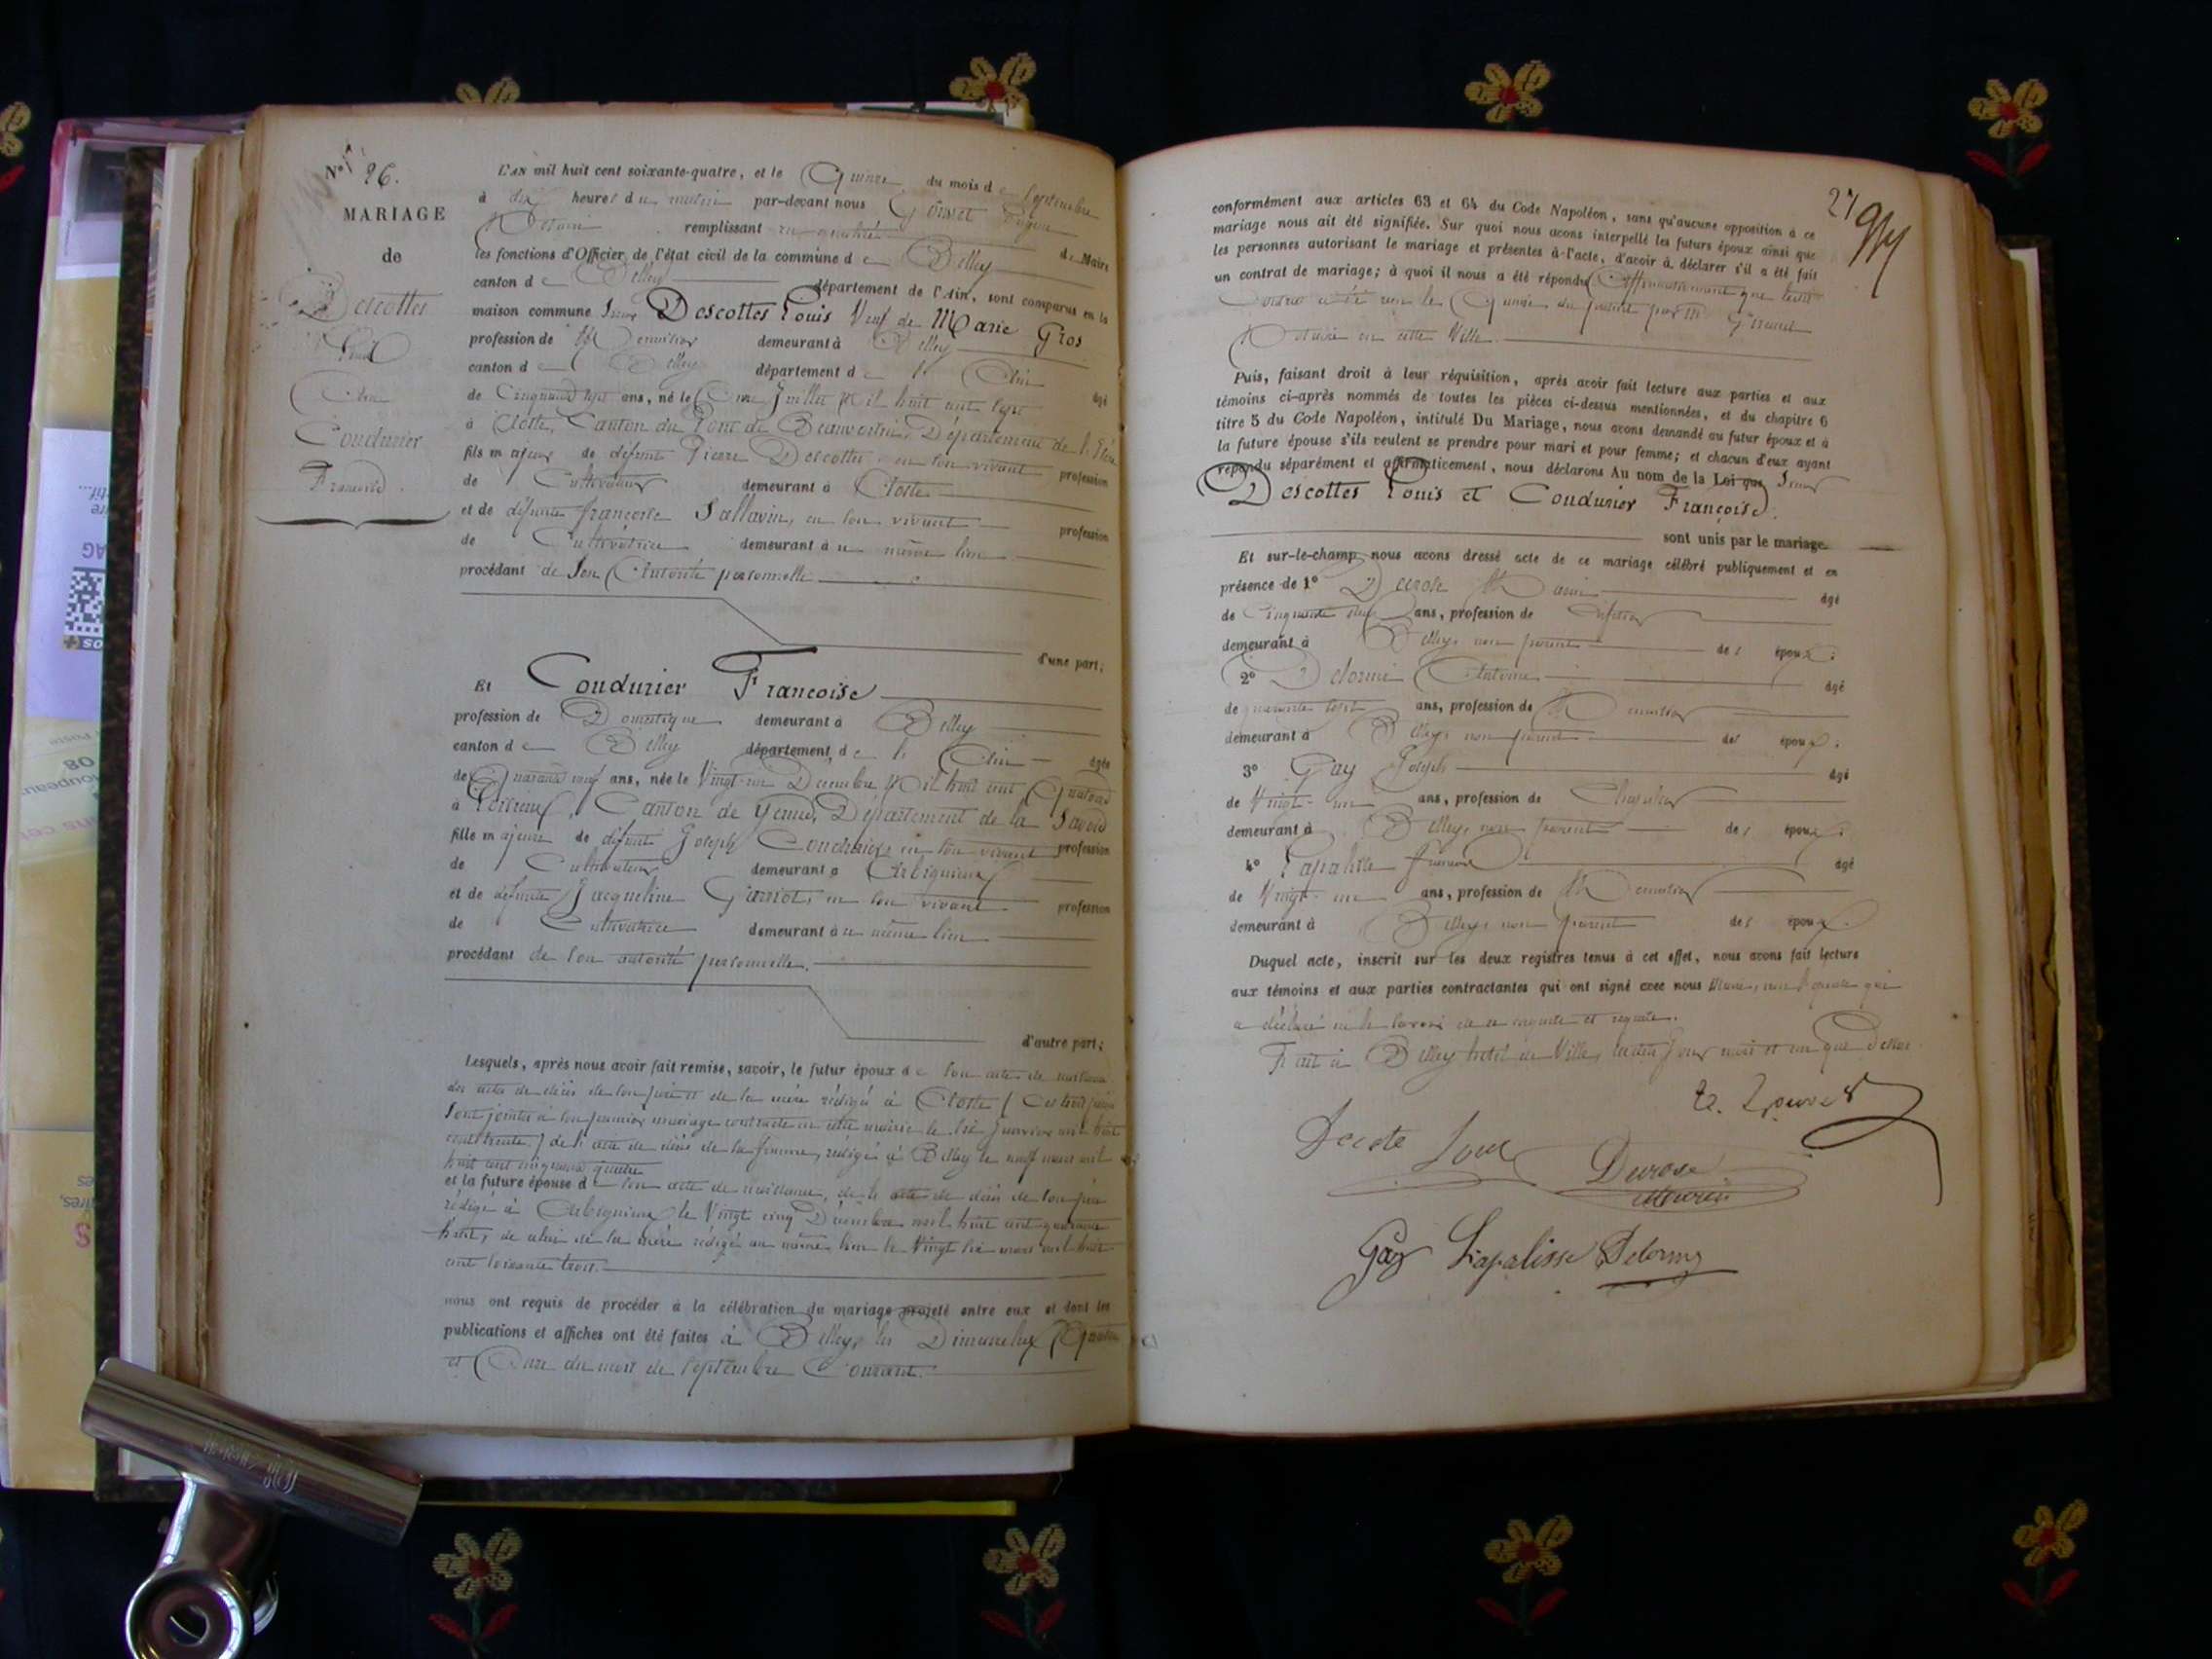 N° 26.
MARIAGE
de
Descottes
Louis
Condurier
Françoise
L'AN mil huit cent soixante-quatre, et le Quinze du mois de Septembre
à dix heures du matin par-devant nous
Notaire remplissant en qualité de Maire
les fonctions d'Officier de l'état civil de la commune de Belley
canton de Belley département de l'Ain, sont comparus en la
maison commune Sieur Descottes Louis Veuf de Marie Gros
profession de Menuisier demeurant à Belley
canton de Belley département de l'Ain âgé
de Cinquante sept ans, né le Onze Juillet Mil huit cent sept
à Aoste, Canton du Pont de Beauvoisin, Département de l'Isère
fils majeur de défunt Pierre Descottes en son vivant profession
de Cultivateur demeurant à Aoste
et de défunte françoise Sallavin, en son vivant profession
de Cultivatrice demeurant à u même lieu
procédant de Son Autorité personnelle
d'une part;
Et Condurier Françoise
profession de Domestique demeurant à Belley
canton de Belley département de l'Ain âgée
de Quarante neuf ans, née le Vingt-un Décembre Mil huit cent Quatorze
à Canton de Yenne, Département de la Savoie
fille majeure de défunt Joseph Condurier, en son vivant profession
de Cultivateur demeurant à Arbignieu
et de défunte Jacqueline en son vivant profession
de Cultivatrice demeurant à u même lieu
procédant de son autorité personnelle.
d'autre part;
Lesquels, après nous avoir fait remise, savoir, le futur époux de son acte de naissance
des actes de décès de son père et de sa mère rédigés à Aoste (Ces trois pièces
sont jointes à son premier mariage contracté en cette mairie le six Janvier mil huit
cent trente.) de l'acte de décès de sa femme, rédigé à Belley le neuf mars mil
huit cent cinquante quatre
et la future épouse de son acte de naissance, de l'acte de décès de son père
rédigé à Arbignieu le Vingt cinq Décembre mil huit cent quarante
huit, de celui de sa mère rédigé au même lieu le Vingt six mars mil huit
cent soixante trois.
nous ont requis de procéder à la célébration du mariage projeté entre eux et dont les
publications et affiches ont été faites à Belley, les Dimanches Quatre
et Onze du mois de Septembre Courant.
27
conformément aux articles 63 et 64 du Code Napoléon, sans qu'aucune opposition à ce
mariage nous ait été signifiée. Sur quoi nous avons interpellé les futurs époux ainsi que
les personnes autorisant le mariage et présentes à l'acte, d'avoir à déclarer s'il a été fait
un contrat de mariage; à quoi il nous a été répondu Affirmativement que leur
Contrat a été reçu le Quinze du par M
Notaire en cette Ville.
Puis, faisant droit à leur réquisition, après avoir fait lecture aux parties et aux
témoins ci-après nommés de toutes les pièces ci-dessus mentionnées, et du chapitre 6
titre 5 du Code Napoléon, intitulé Du Mariage, nous avons demandé au futur époux et à
la future épouse s'ils veulent se prendre pour mari et pour femme; et chacun d'eux ayant
répondu séparément et affirmativement, nous déclarons Au nom de la Loi que Sieur
Descottes Louis et Condurier Françoise.
sont unis par le mariage.
Et sur-le-champ nous avons dressé acte de ce mariage célébré publiquement et en
présence de 1° Durose âgé
de Cinquante deux ans, profession de
demeurant à Belley, non parent des époux;
2° Delorme Antoine âgé
de quarante sept ans, profession de Menuisier
demeurant à Belley, non parent des époux;
3° Gay Joseph âgé
de Vingt-un ans, profession de Chapelier
demeurant à Belley, non parent des époux;
4° Lapalisse âgé
de Vingt-un ans, profession de Menuisier
demeurant à Belley, non parent des époux.
Duquel acte, inscrit sur les deux registres tenus à cet effet, nous avons fait lecture
aux témoins et aux parties contractantes qui ont signé avec nous Maire, non l'épouse qui
a déclaré ne le savoir de ce enquise et requise.
Fait à Belley hôtel de Ville, lesdits jour mois et an que dessus.
Durose
Gay Lapalisse Delorme